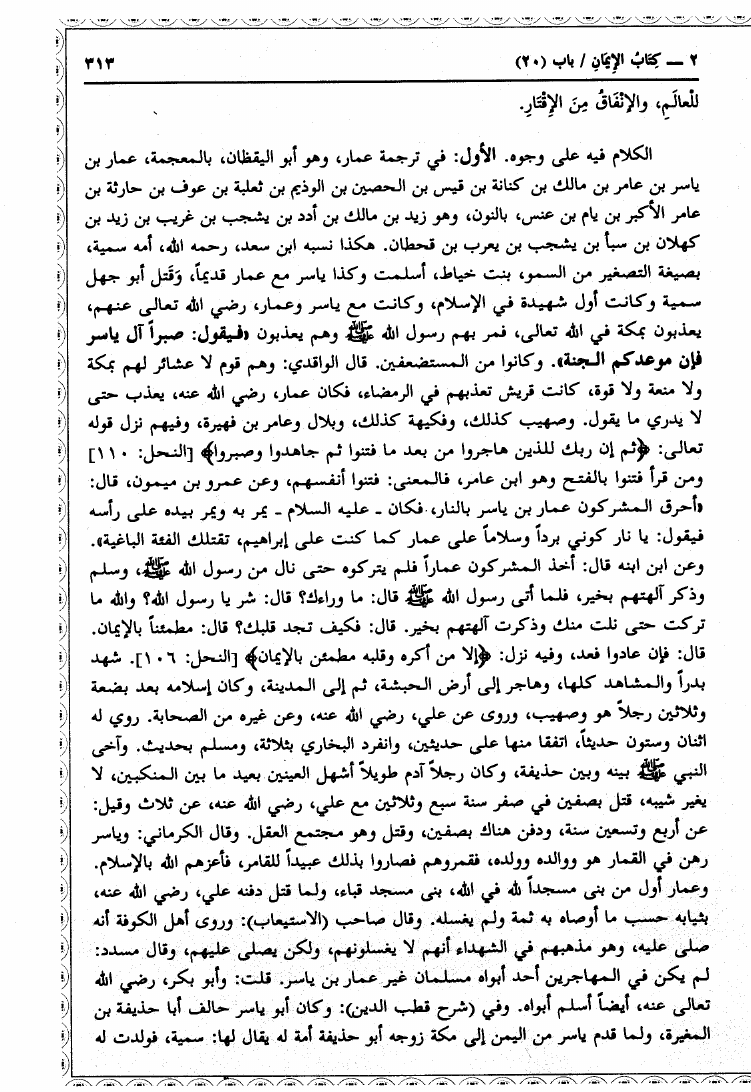 ٢ ـــ كِتَابُ الإِيمَانِ / باب (٢٠)
٣١٣
لِلْعالَمِ، والإِنْفَاقُ مِنَ الإِقْتَارِ.
الكلام فيه على وجوه. الأول: في ترجمة عمار، وهو أبو اليقظان، بالمعجمة، عمار بن
ياسر بن عامر بن مالك بن كنانة بن قيس بن الحصين بن الوذيم بن ثعلبة بن عوف بن حارثة بن
عامر الأكبر بن يام بن عنس، بالنون، وهو زيد بن مالك بن أدد بن يشجب بن غريب بن زيد بن
كهلان بن سبأ بن يشجب بن يعرب بن قحطان. هكذا نسبه ابن سعد، رحمه الله، أمه سمية،
بصيغة التصغير من السمو، بنت خياط، أسلمت وكذا ياسر مع عمار قديماً، وَقَتل أبو جهل
سمية وكانت أول شهيدة في الإسلام، وكانت مع ياسر وعمار، رضي الله تعالى عنهم،
يعذبون بمكة في الله تعالى، فمر بهم رسول الله ﷺ وهم يعذبون «فيقول: صبراً آل ياسر
فإن موعدكم الجنة». وكانوا من المستضعفين. قال الواقدي: وهم قوم لا عشائر لهم بمكة
ولا منعة ولا قوة، كانت قريش تعذبهم في الرمضاء، فكان عمار، رضي الله عنه، يعذب حتى
لا يدري ما يقول. وصهيب كذلك، وفكيهة كذلك، وبلال وعامر بن فهيرة، وفيهم نزل قوله
تعالى: ﴿ثم إن ربك للذين هاجروا من بعد ما فتنوا ثم جاهدوا وصبروا﴾ [النحل: ١١٠]
ومن قرأ فتنوا بالفتح وهو ابن عامر، فالمعنى: فتنوا أنفسهم، وعن عمرو بن ميمون، قال:
«أحرق المشركون عمار بن ياسر بالنار، فكان ـ عليه السلام ـ يمر به ويمر بيده على رأسه
فيقول: يا نار كوني برداً وسلاماً على عمار كما كنت على إبراهيم، تقتلك الفئة الباغية».
وعن ابن ابنه قال: أخذ المشركون عماراً فلم يتركوه حتى نال من رسول الله ﷺ، وسلم
وذكر آلهتهم بخير، فلما أتى رسول الله ﷺ قال: ما وراءك؟ قال: شر يا رسول الله؟ والله ما
تركت حتى نلت منك وذكرت آلهتهم بخير. قال: فكيف تجد قلبك؟ قال: مطمئناً بالإيمان.
قال: فإن عادوا فعد، وفيه نزل: ﴿إلا من أكره وقلبه مطمئن بالإيمان﴾ [النحل: ١٠٦]. شهد
بدراً والمشاهد كلها، وهاجر إلى أرض الحبشة، ثم إلى المدينة، وكان إسلامه بعد بضعة
وثلاثين رجلاً هو وصهيب، وروى عن علي، رضي الله عنه، وعن غيره من الصحابة. روي له
اثنان وستون حديثاً، اتفقا منها على حديثين، وانفرد البخاري بثلاثة، ومسلم بحديث. وآخى
النبي ﷺ بينه وبين حذيفة، وكان رجلاً آدم طويلاً أشهل العينين بعيد ما بين المنكبين، لا
يغير شيبه، قتل بصفين في صفر سنة سبع وثلاثين مع علي، رضي الله عنه، عن ثلاث وقيل:
عن أربع وتسعين سنة، ودفن هناك بصفين، وقتل وهو مجتمع العقل. وقال الكرماني: وياسر
رهن في القمار هو ووالده وولده، فقمروهم فصاروا بذلك عبيداً للقامر، فأعزهم الله بالإسلام.
وعمار أول من بنى مسجداً لله في الله، بنى مسجد قباء، ولما قتل دفنه علي، رضي الله عنه،
بثيابه حسب ما أوصاه به ثمة ولم يغسله. وقال صاحب (الاستيعاب): وروى أهل الكوفة أنه
صلى عليه، وهو مذهبهم في الشهداء أنهم لا يغسلونهم، ولكن يصلى عليهم، وقال مسدد:
لم يكن في المهاجرين أحد أبواه مسلمان غير عمار بن ياسر. قلت: وأبو بكر، رضي الله
تعالى عنه، أيضاً أسلم أبواه. وفي (شرح قطب الدين): وكان أبو ياسر حالف أبا حذيفة بن
المغيرة، ولما قدم ياسر من اليمن إلى مكة زوجه أبو حذيفة أمة له يقال لها: سمية، فولدت له